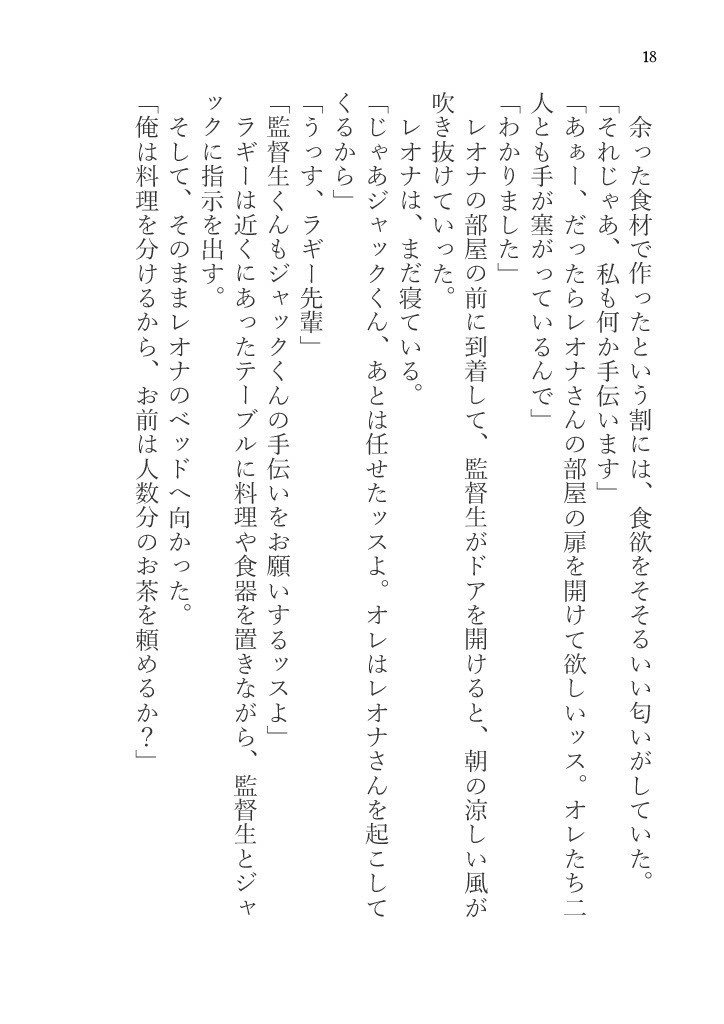 18
余った食材で作ったという割には、食欲をそそるいい匂いがしていた。
「それじゃあ、私も何か手伝います」
「あぁー、だったらレオナさんの部屋の扉を開けて欲しいッス。オレたち二
人とも手が塞がっているんで」
「わかりました」
レオナの部屋の前に到着して、監督生がドアを開けると、朝の涼しい風が
吹き抜けていった。
レオナは、まだ寝ている。
「じゃあジャックくん、あとは任せたッスよ。オレはレオナさんを起こして
くるから」
「うっす、ラギー先輩」
「監督生くんもジャックくんの手伝いをお願いするッスよ」
ラギーは近くにあったテーブルに料理や食器を置きながら、監督生とジャ
ックに指示を出す。
そして、そのままレオナのベッドへ向かった。
「俺は料理を分けるから、お前は人数分のお茶を頼めるか？」